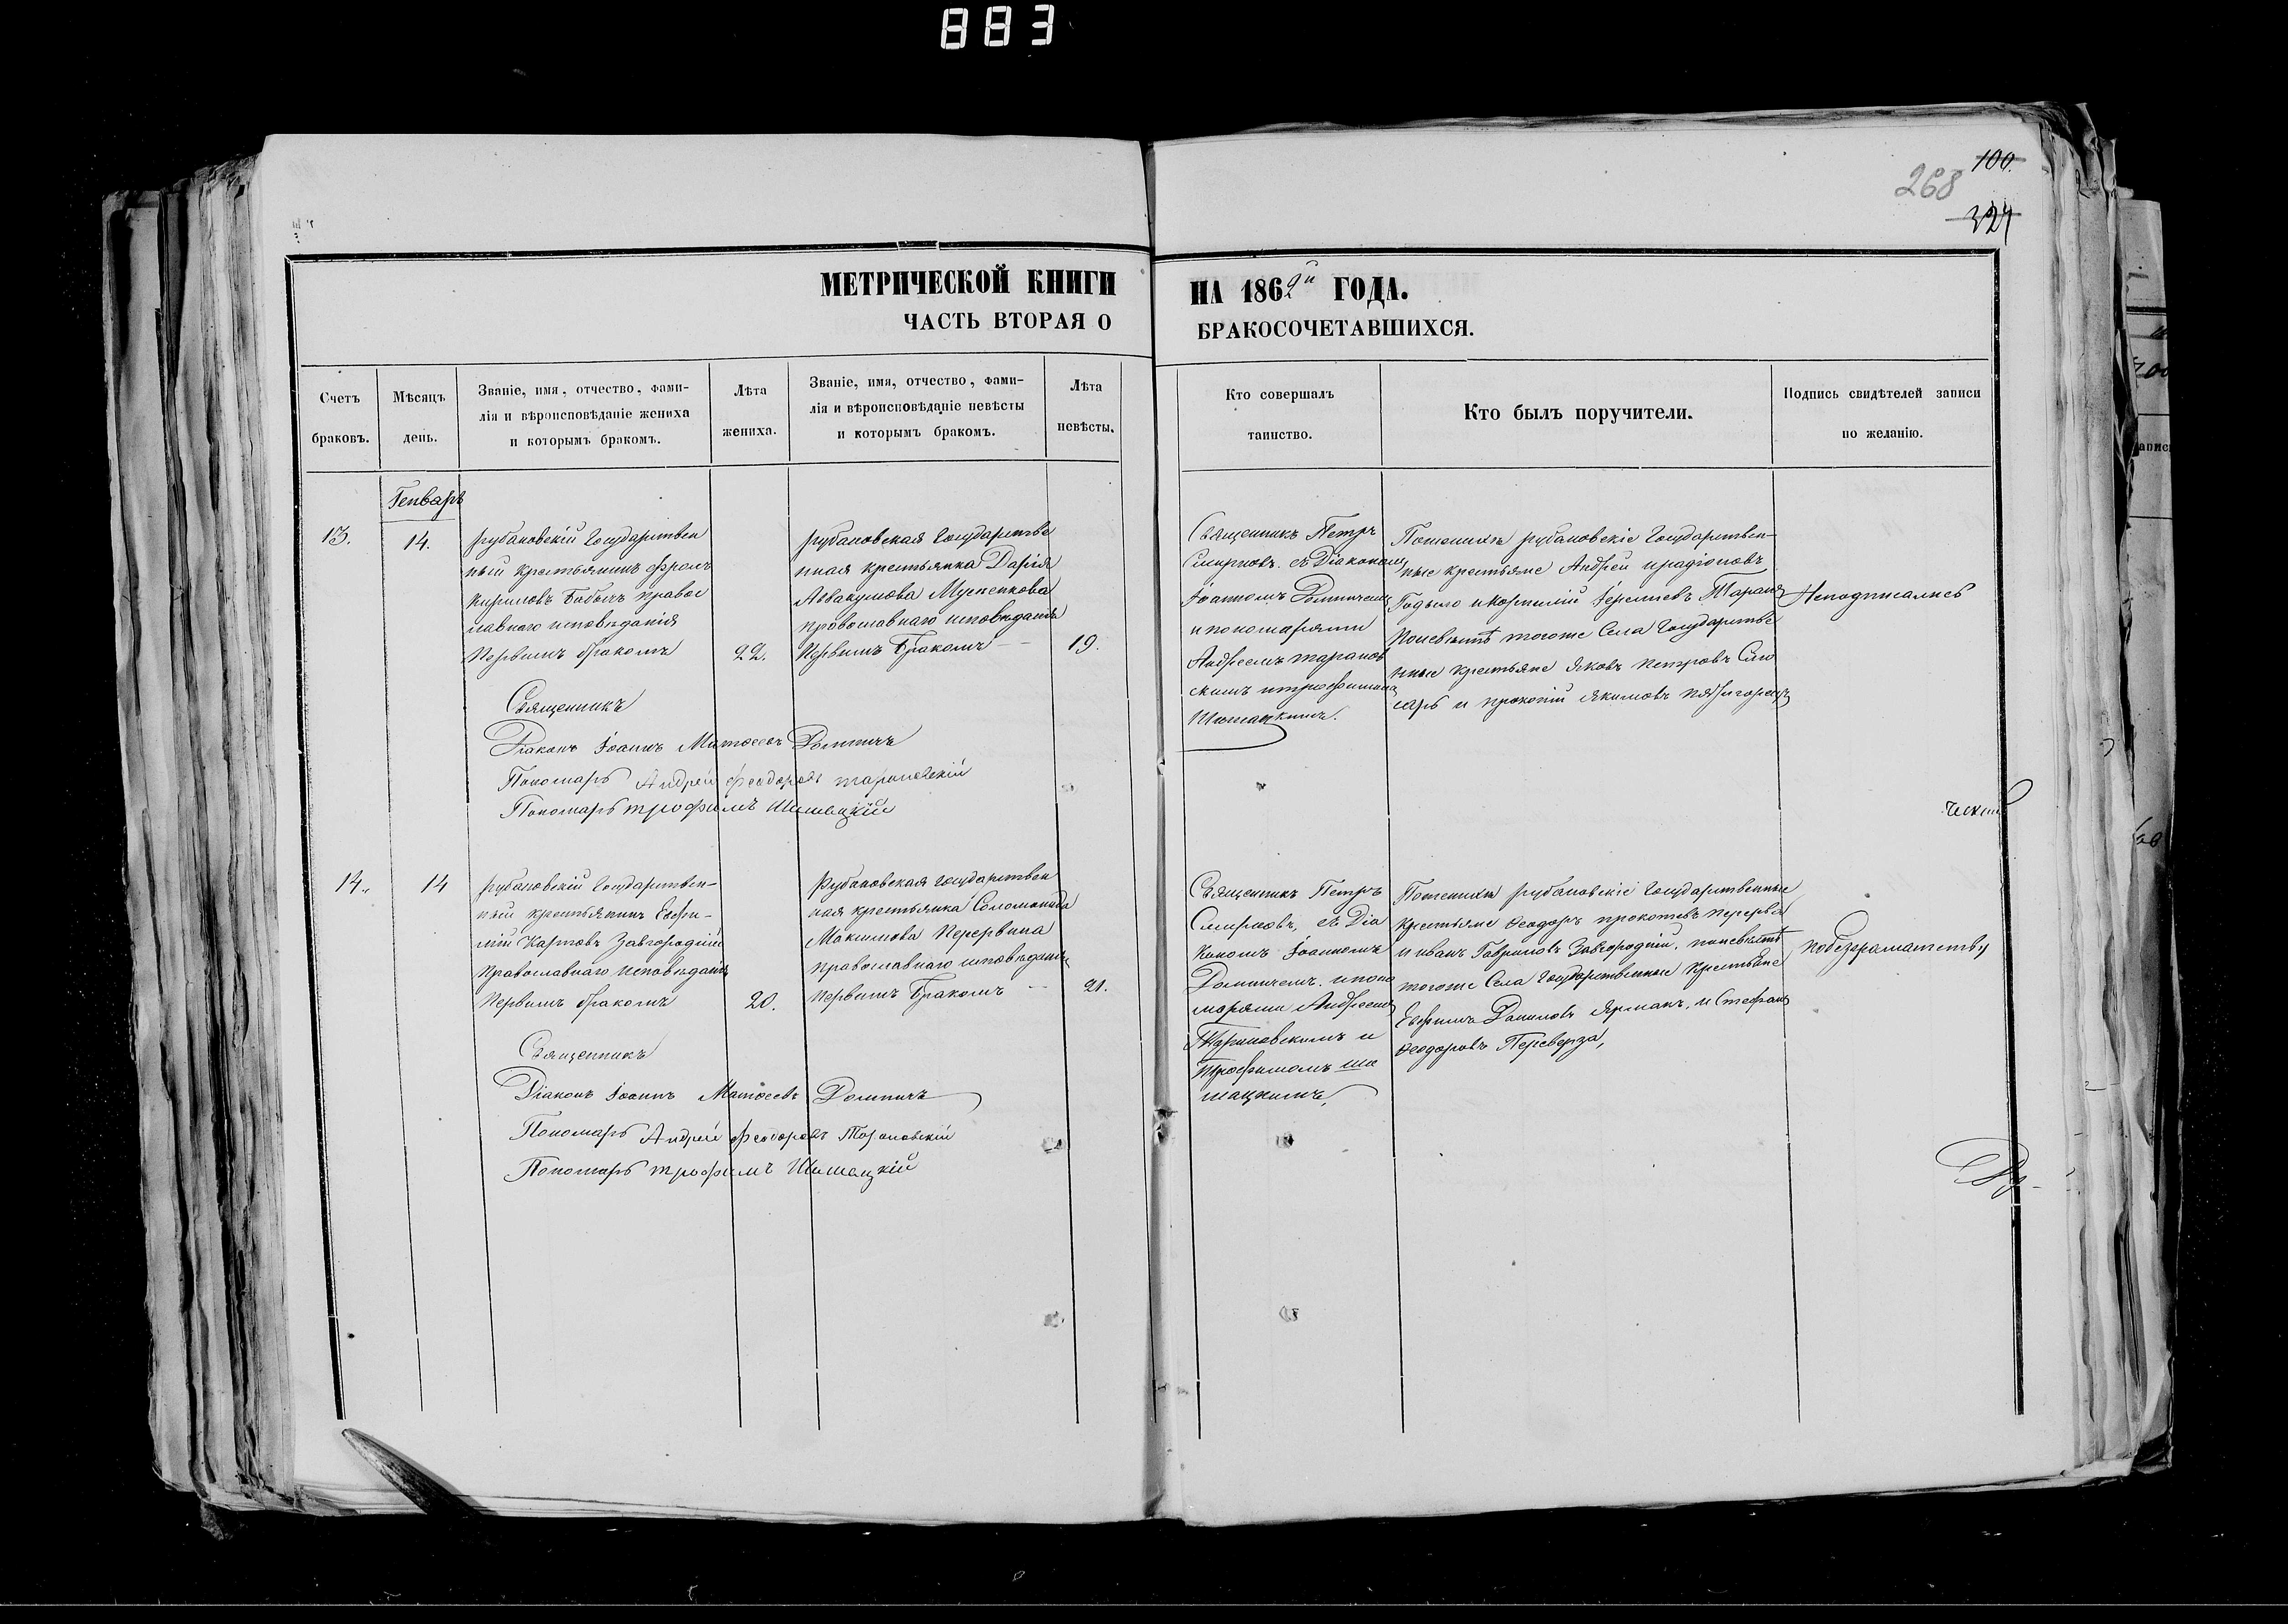 883
268
100.
324
МЕТРИЧЕСКОЙ КНИГИ
НА 1862й ГОДА.
ЧАСТЬ ВТОРАЯ О
БРАКОСОЧЕТАВШИХСЯ.
Счетъ
браковъ.
Мѣсяцъ
день.
Званіе, имя, отчество, фами-
лія и вѣроисповѣданіе жениха
и которымъ бракомъ.
Лѣта
жениха.
Званіе, имя, отчество, фами-
лія и вѣроисповѣданіе невѣсты
и которымъ бракомъ.
Лѣта
невѣсты.
Кто совершалъ
таинство.
Кто былъ поручители.
Подпись свидѣтелей записи
по желанію.
Генварь
13.
14.
рубановскій государствен
ный крестьянинъ Фролъ
Кириловъ правос
лавнаго исповѣданія
первымъ бракомъ
22.
рубановская государстве
нная крестьянка Дарія
Аввакумова
православнаго исповѣданія
первымъ бракомъ —
19.
Священникъ Петръ
Смирновъ. съ Діакономъ
Іоанномъ
и пономарями
Андреемъ таранов
скимъ
Поженихѣ рубановскіе государствен-
ные крестьяне Андрей
и Таранъ
Поневѣстѣ тогоже Села государстве
нные крестьяне Яковъ Петровъ Слю
сарь и прокопій Якимовъ
Неподписались
Священникъ
Діаконъ Іоаннъ Матѳеевъ
Пономарь Андрей Феодоровъ тарановскій
Пономарь трофимъ
14.
14
рубановскій государствен-
ный крестьянинъ Евфи-
мій Карповъ Завгородній
православнаго исповѣданія
первымъ бракомъ
20.
рубановская государствен
ная крестьянка Соломонида
Максимова Перервина
православнаго исповѣданія
первымъ бракомъ —
21.
Священникъ Петръ
Смирновъ, съ Діа
кономъ Іоанномъ
и поно
марями Андреемъ
и
Трофимомъ ши
Поженихѣ рубановскіе государственные
крестьяне Ѳеодоръ прокопіевъ перерва
и иванъ Гавриловъ Завгородній. поневѣстѣ
тогоже Села государственные крестьяне
Евфимъ Даниловъ Ярмакъ, и Стефанъ
Ѳеодоровъ Переверза,
побезграматству
Священникъ
Діаконъ Іоаннъ Матѳеевъ
Пономарь Андрей Феодоровъ Тарановскій
Пономарь трофимъ